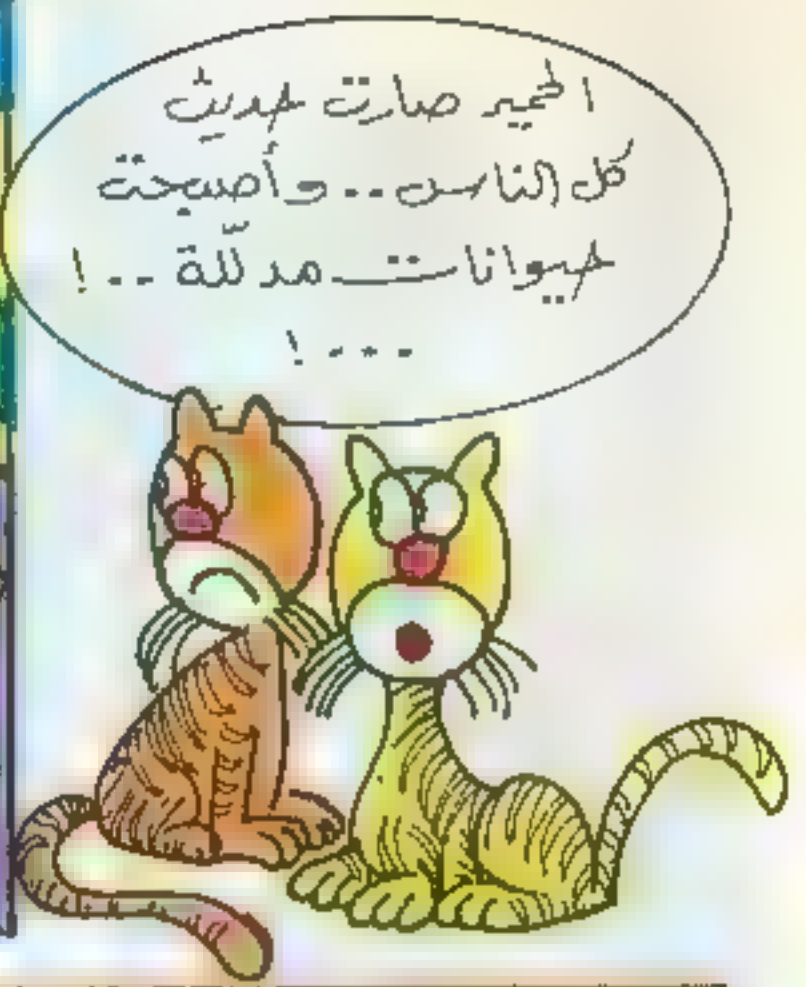 الحمير صارت حديث
كل الناس.. وأصبحت
حيوانات مدلّلة ..!
...!